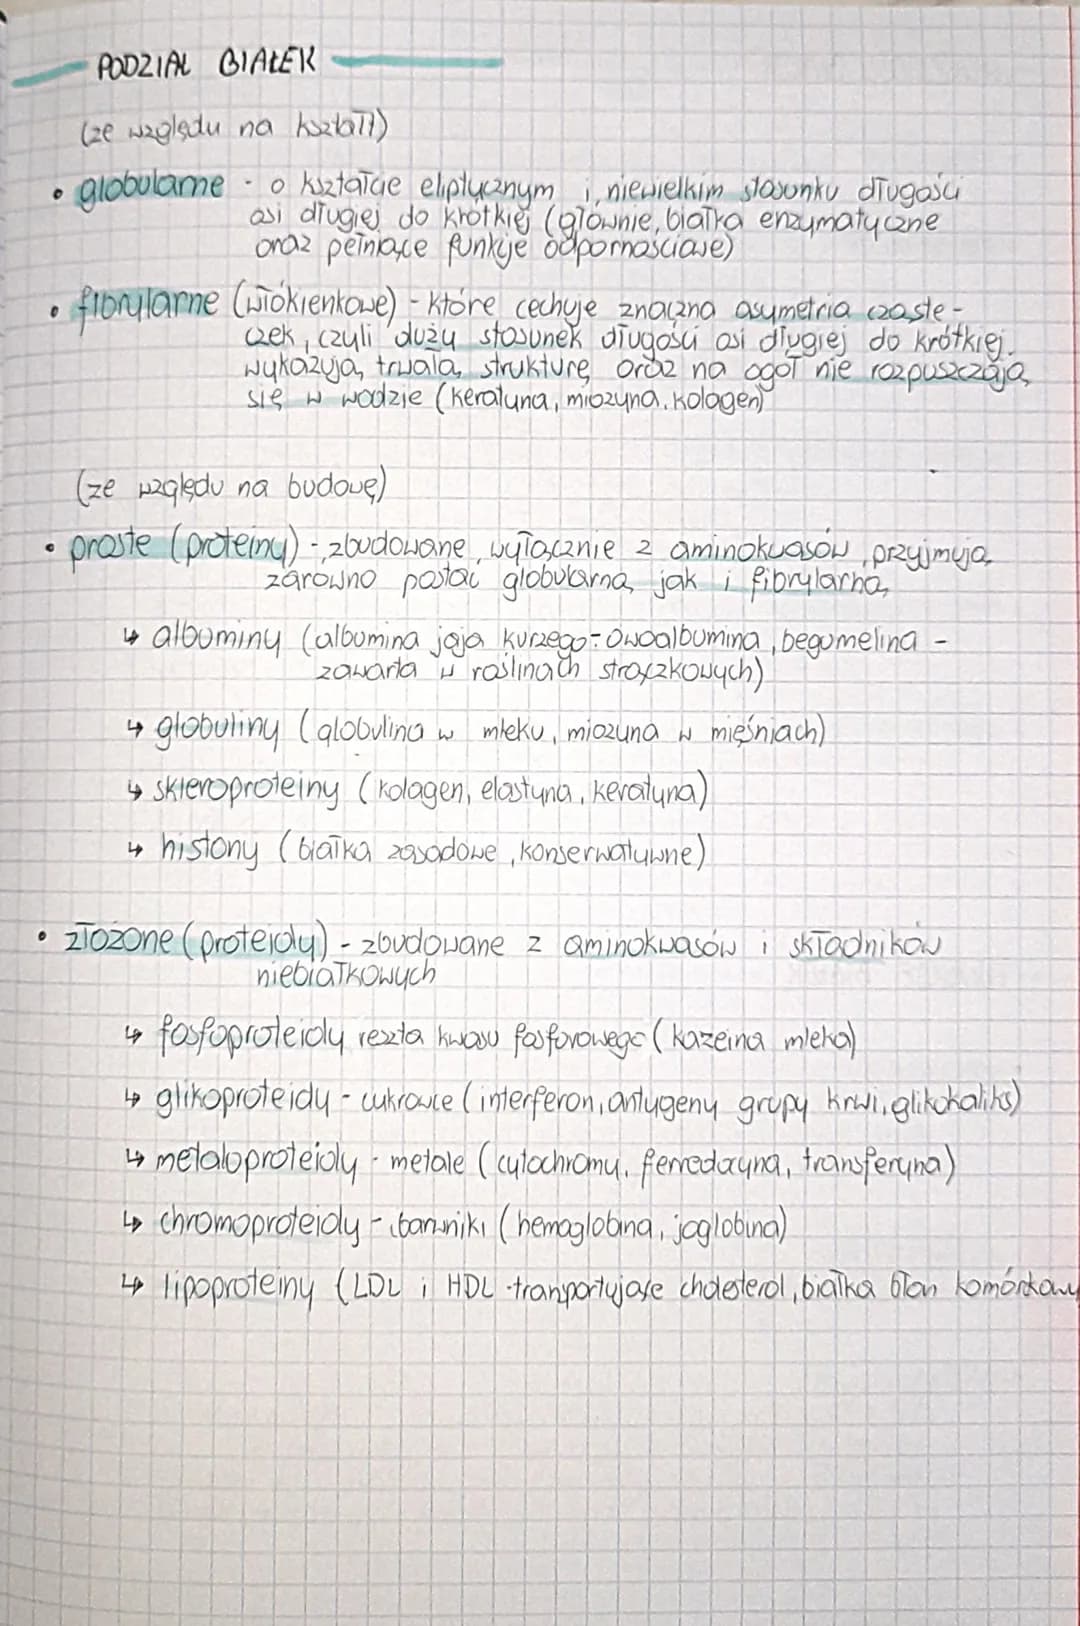 PODZIAŁ BIAŁEK
(ze względu na kształt)
• globularne - o kształcie eliptycznym i niewielkim stosunku długości
osi długiej do krótkiej (głownie białka enzymatyczne
oraz pełniące funkcje odpornościowe)
• fibrylarne (włókienkowe) - które cechuje znaczna asymetria cząste-
czek, czyli duży stosunek długości osi długiej do krótkiej.
wykazują trwałą strukturę oraz na ogół nie rozpuszczają
się w wodzie (keratyna, miozyna, kolagen)
(ze względu na budowę)
• proste (proteiny) - zbudowane wyłącznie z aminokwasów, przyjmują
zarówno postać globularną jak i fibrylarną
↳ albuminy (albumina jaja kurzego - owoalbumina, begumelina -
zawarta w roślinach strączkowych)
↳ globuliny (globulina w mleku, miozyna w mięśniach)
↳ skleroproteiny (kolagen, elastyna, keratyna)
↳ histony (białka zasadowe, konserwatywne)
• złożone (proteidy) - zbudowane z aminokwasów i składników
niebiałkowych
↳ fosfoproteidy reszta kwasu fosforowego (kazeina mleka)
↳ glikoproteidy - cukrowce (interferon, antygeny grupy krwi, glikokaliks)
↳ metaloproteidy - metale (cytochromy, ferredoxyna, transferyna)
↳ chromoproteidy - barwniki (hemoglobina, joglobina)
↳ lipoproteiny (LDL i HDL - transportujące cholesterol, białka błon komórkowy